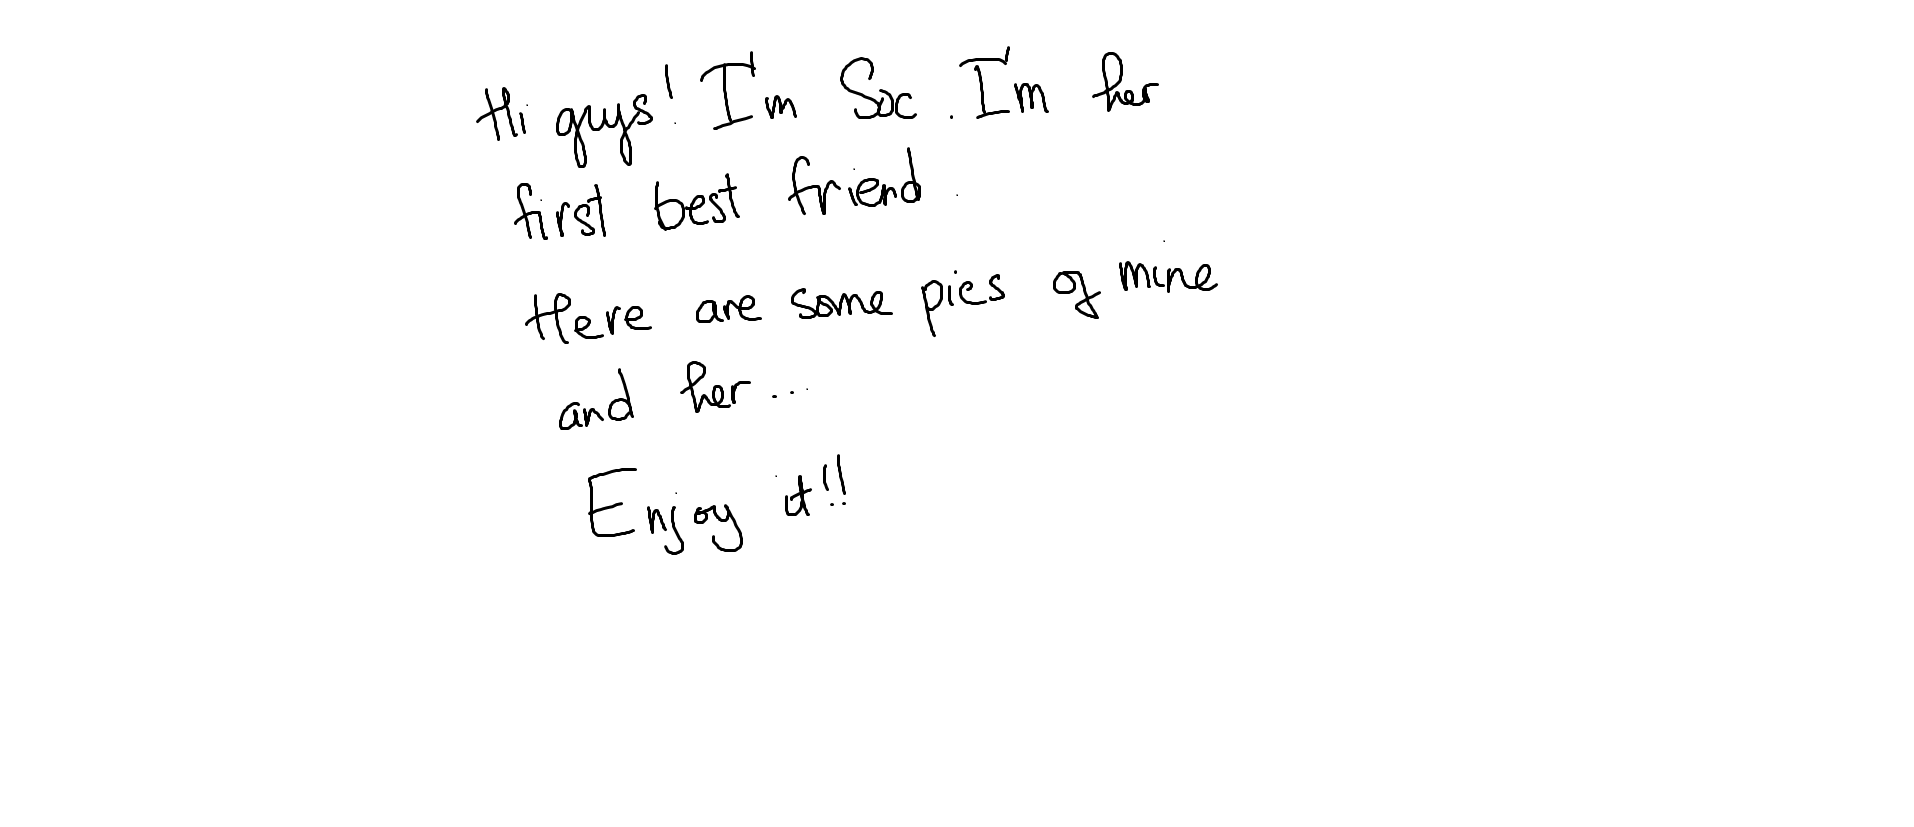 Hi guys! I'm Soc. I'm her
first best friend.
Here are some pics of mine
and her...
Enjoy it!!